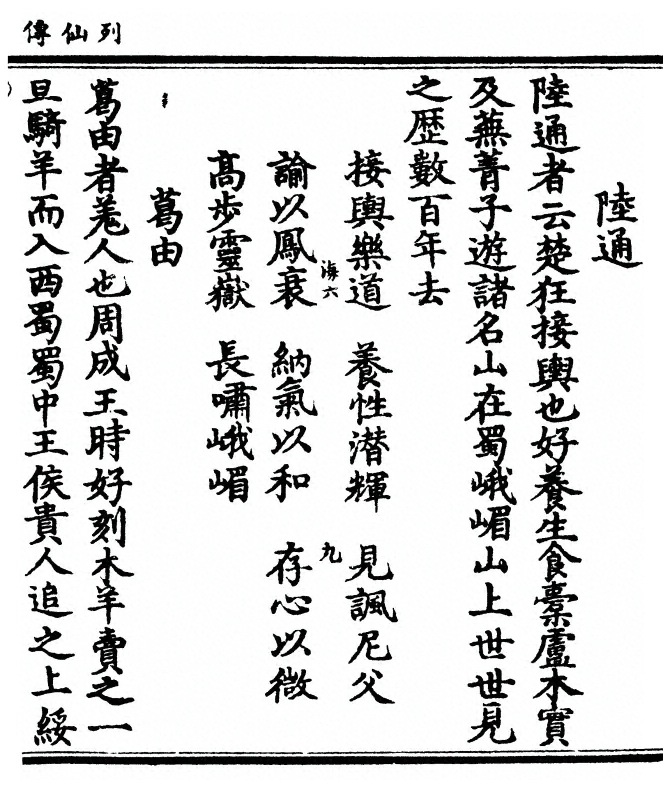 列仙傳
陸通
陸通者云楚狂接輿也好養生食橐廬木實
及蕪菁子遊諸名山在蜀峨嵋山上世世見
之歷數百年去
接輿樂道 養性潛輝 見諷尼父
海六 九
諭以鳳衰 納氣以和 存心以微
高步靈嶽 長嘯峨嵋
葛由
葛由者羗人也周成王時好刻木羊賣之一
旦騎羊而入西蜀蜀中王侯貴人追之上綏